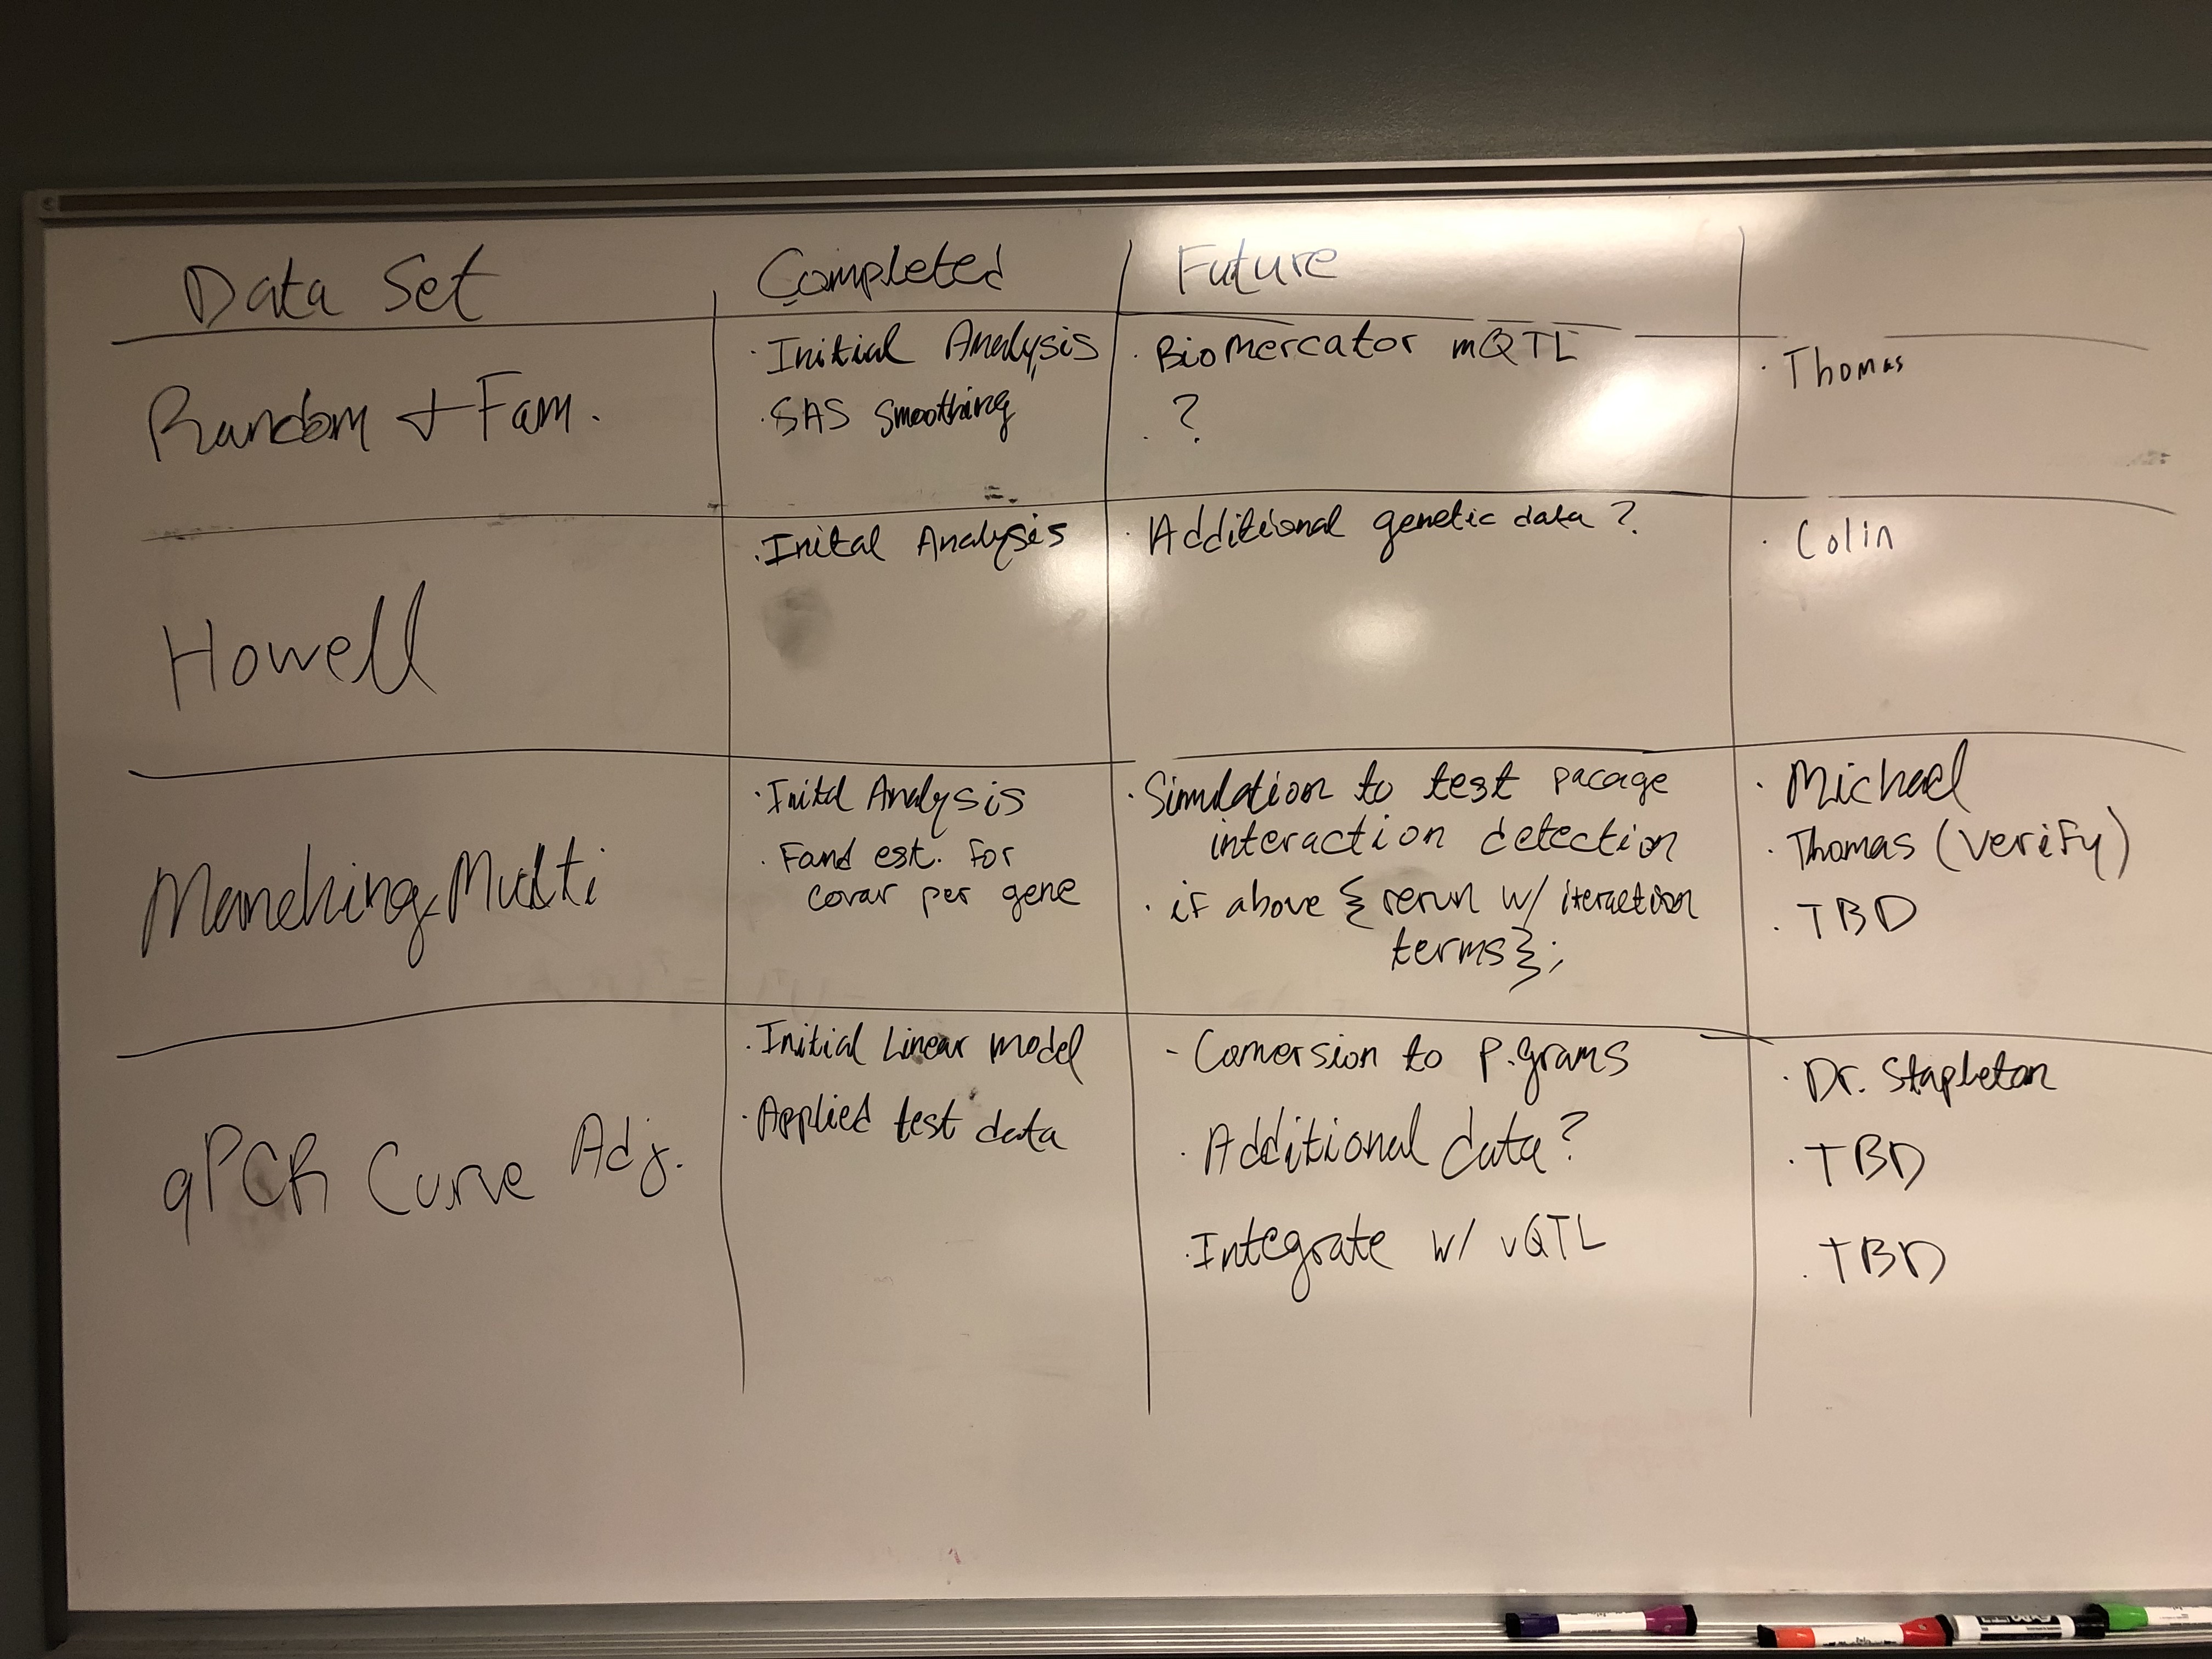 Data Set
Completed
Future
Random + Fam.
· Initial Analysis
· SAS Smoothing
· BioMercator mQTL
· ?
· Thomas
Howell
· Inital Analysis
· Additional genetic data ?
· Colin
Manching Multi
· Inital Analysis
· Found est. for
covar per gene
· Simulation to test pacage
interaction detection
· if above { rerun w/ iteraction
terms};
· Michael
· Thomas (verify)
· TBD
qPCR Curve Adj.
· Initial Linear model
· Applied test data
- Conversion to p.grams
· Additional data?
· Integrate w/ vQTL
· Dr. Stapleton
· TBD
· TBD